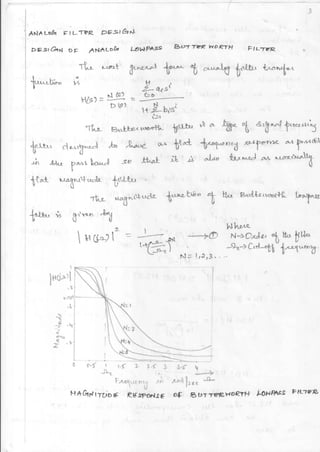 3
ANALOG FILTER DESIGN
DESIGN OF ANALOG LOWPASS BUTTERWORTH FILTER
The most general form of analog filter transfer
function is
H(s) = N(s) / D(s) = M Σ i=0 ai s^i / 1+ N Σ i=1 bi s^i
The Butterworth filter is a type of signal processing
filter designed to have as flat frequency response as possible
in the pass band so that it is also termed as maximally
flat magnitude filter.
The magnitude function of the Butterworth lowpass
filter is given by
|H(jΩ)|² = 1 / 1+(Ω/Ωc)^2N → ①
Where
N → Order of the filter
Ωc → Cutoff frequency
N = 1,2,3....
|H(jΩ)|
Magnitude
N=1
N=2
0 0.5 1 1.5 2 2.5 3 3.5 4
Ωc
Frequency in rad/sec Ω
MAGNITUDE RESPONSE OF BUTTERWORTH LOWPASS FILTER